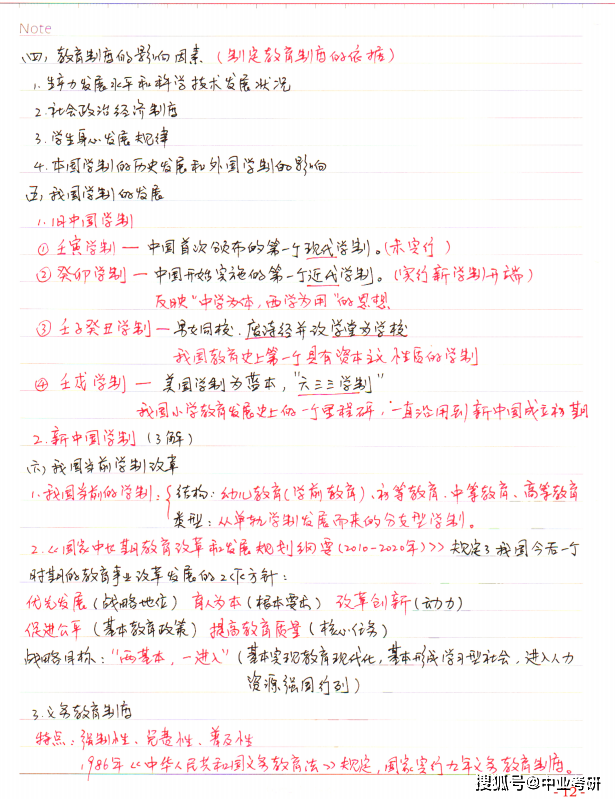 Note
(四) 教育制度的影响因素 (制定教育制度的依据)
1. 生产力发展水平和科学技术发展状况
2. 社会政治经济制度
3. 学生身心发展规律
4. 本国学制的历史发展和外国学制的影响
(五) 我国学制的发展
1. 旧中国学制
① 壬寅学制 — 中国首次颁布的第一个现代学制。(未实行)
② 癸卯学制 — 中国开始实施的第一个近代学制。(实行新学制开端)
反映“中学为本,西学为用”的思想
③ 壬子癸丑学制 — 男女同校.废除读经并改学堂为学校
我国教育史上第一个具有资本主义性质的学制
④ 壬戌学制 — 美国学制为蓝本,“六三三学制”
我国小学教育发展史上的一个里程碑,一直沿用到新中国成立初期
2. 新中国学制 (了解)
(六) 我国当前学制改革
1. 我国当前的学制:{结构:幼儿教育(学前教育)、初等教育、中等教育、高等教育
类型:从单轨学制发展而来的分支型学制。
2.《国家中长期教育改革和发展规划纲要(2010-2020年)》规定了我国今后一个
时期的教育事业改革发展的工作方针:
优先发展(战略地位) 育人为本(根本要求) 改革创新(动力)
促进公平(基本教育政策) 提高教育质量(核心任务)
战略目标:“两基本,一进入”(基本实现教育现代化,基本形成学习型社会,进入人力
资源强国行列)
3. 义务教育制度
特点:强制性、免费性、普及性
1986年《中华人民共和国义务教育法》规定,国家实行九年义务教育制度。
搜狐号@中业考研
-12-